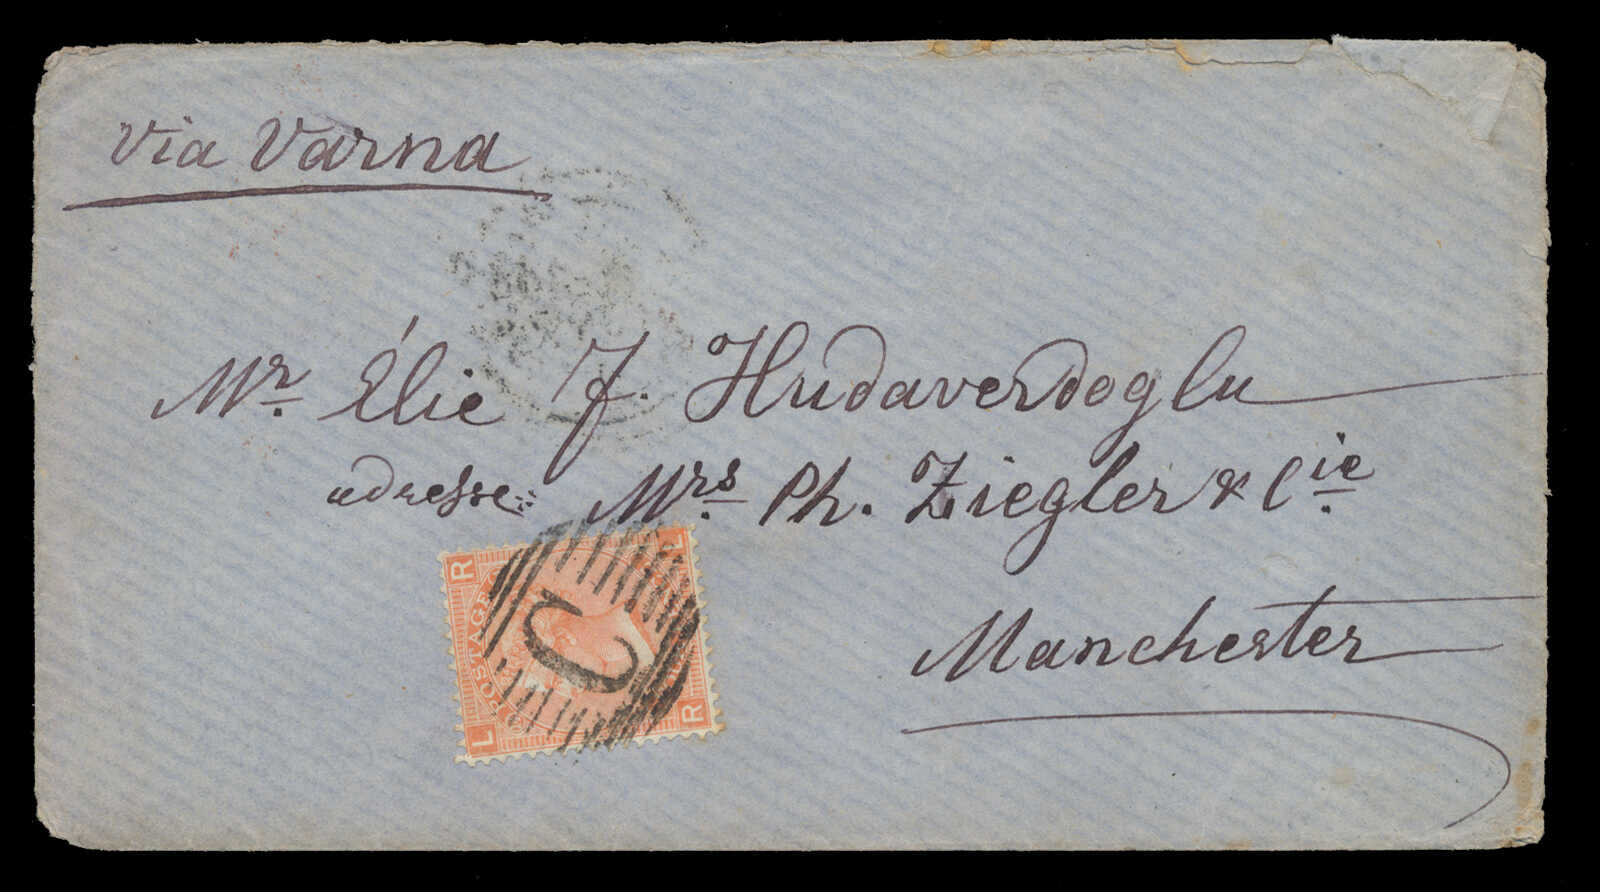 via Varna
Mr. Élie J. Hudaverdoglu
adresse: Mrs. Ph. Ziegler & Cie.
Manchester
R L
POSTAGE
C
L R